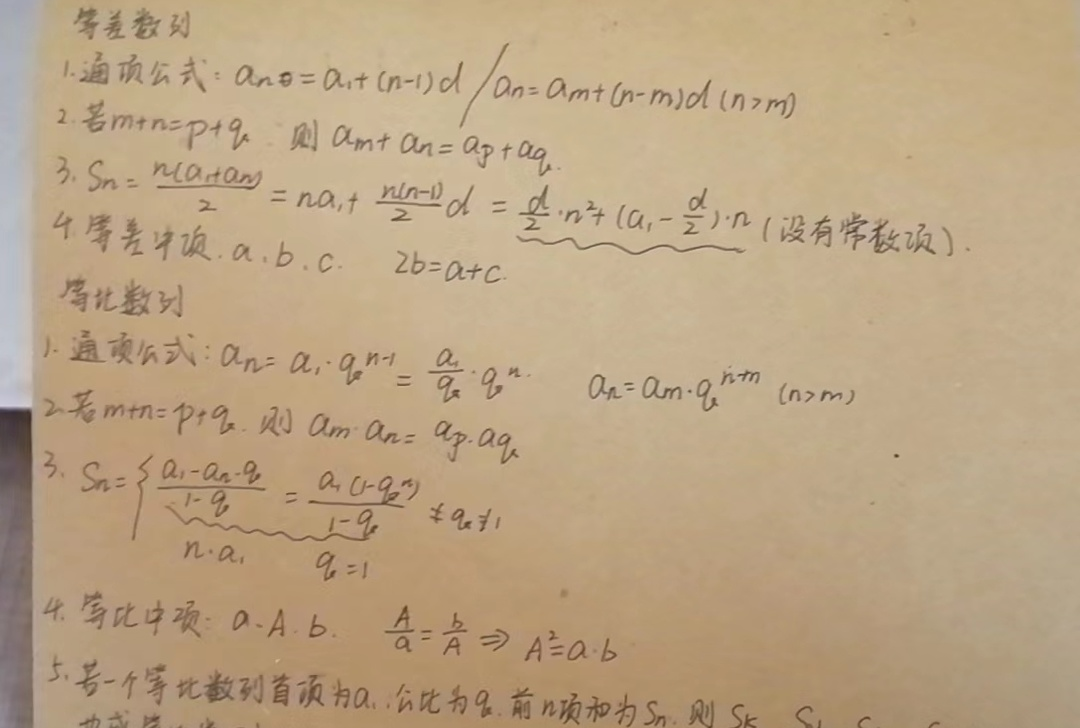 等差数列
1.通项公式：an=a₁+(n-1)d / an=am+(n-m)d (n>m)
2.若m+n=p+q 则 am+an=ap+aq.
3. Sn=n(a₁+an)/2=na₁+n(n-1)/2 d=d/2·n²+(a₁-d/2)·n (没有常数项).
4.等差中项.a.b.c. 2b=a+c.
等比数列
1.通项公式：an=a₁·qⁿ⁻¹=a₁/q·qⁿ. an=am·qⁿ⁺ᵐ (n>m)
2.若m+n=p+q.则 am·an=ap·aq
3. Sn={ (a₁-an·q)/(1-q)=a₁(1-qⁿ)/(1-q) q≠1
n·a₁ q=1
4.等比中项：a.A.b. A/a=b/A⇒A²=a·b
5.若一个等比数列首项为a₁.公比为q.前n项和为Sn.则